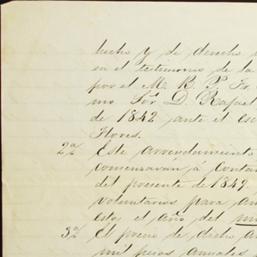 hecho y de derecho
en el testimonio de la
por el M. R. P. Fr.
mo Sor. D. Rafael
de 1842 ante el es
Flores.
2a. Este arrendamiento
comenzarán á contar
del presente de 1849.
voluntarios para am
esto el año del
3a. El precio de dicho ar
mil pesos anuales